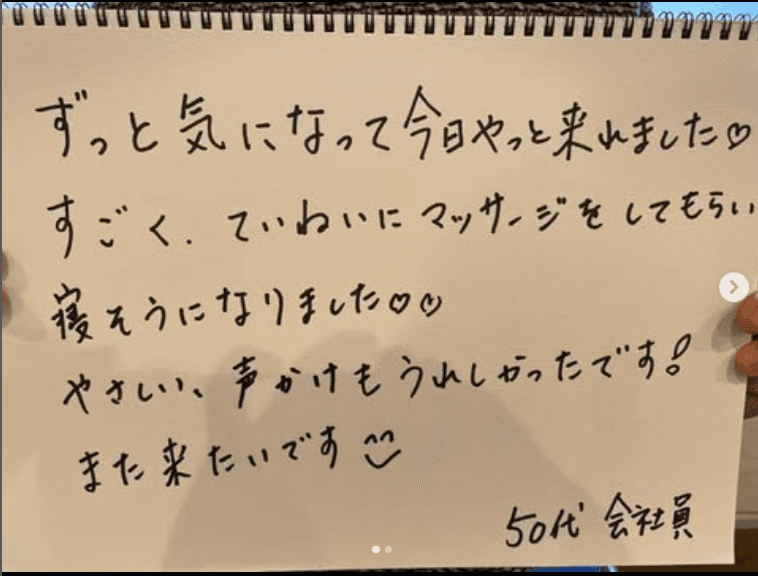 ずっと気になって今日やっと来れました♡
すごく、ていねいにマッサージをしてもらい
寝そうになりました♡♡
やさしい、声かけもうれしかったです!
また来たいです
50代 会社員